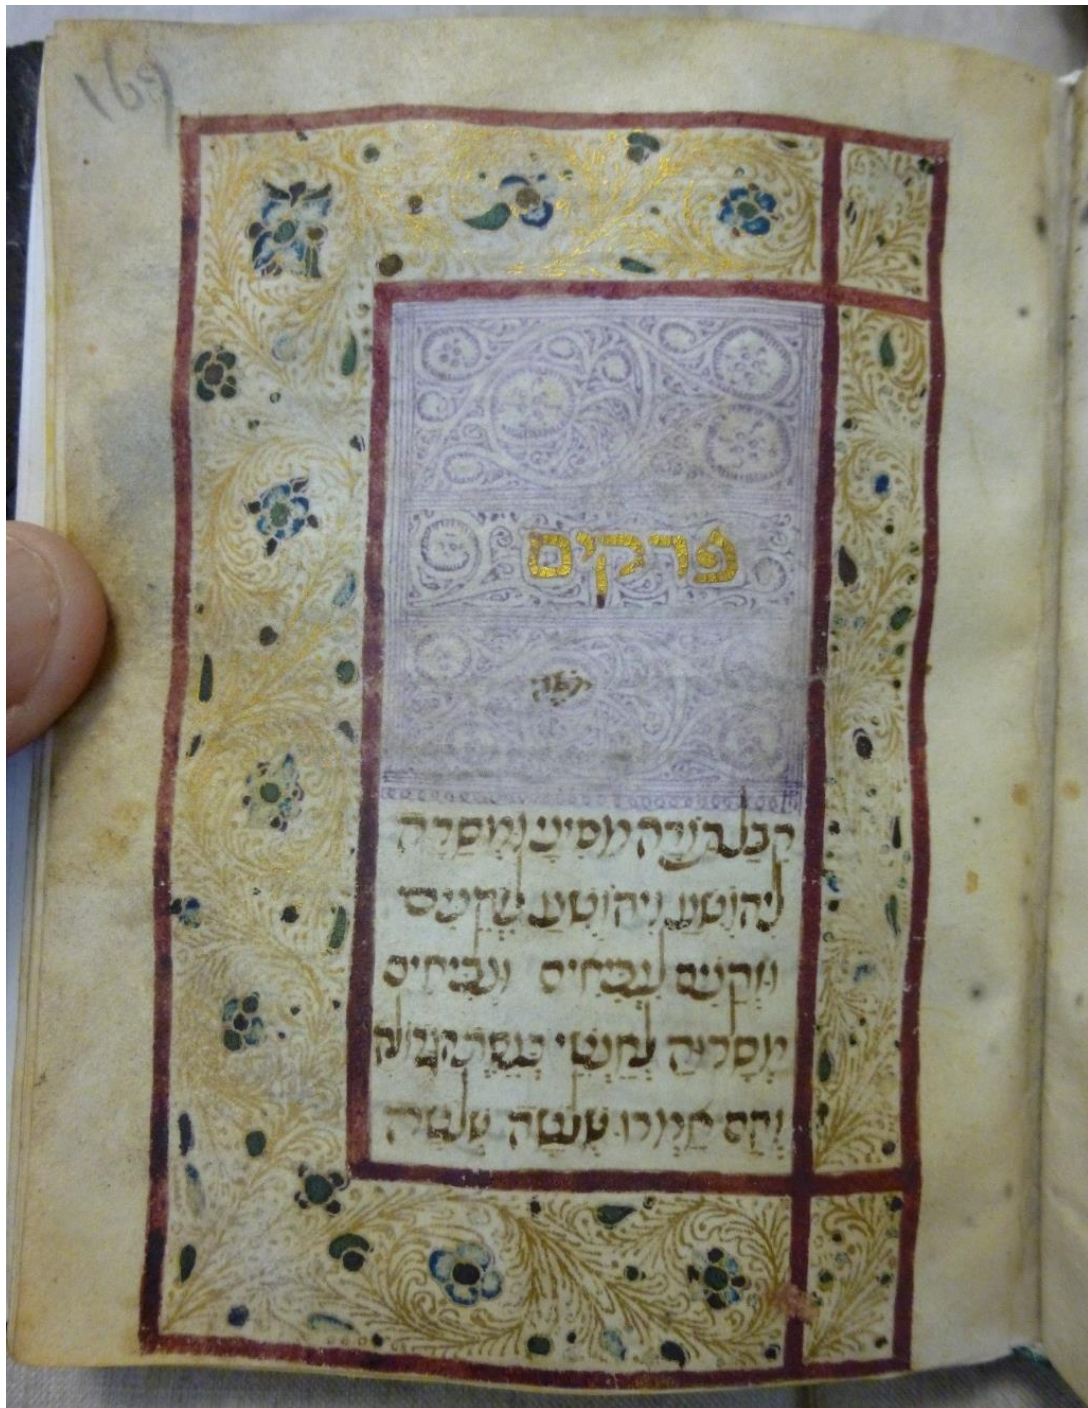 169
פרקים
משה
קבל תורה מסיני ומסרה
ליהושע ויהושע לזקנים
וזקנים לנביאים ונביאים
מסרוה לאנשי כנסת הגדולה
והם אמרו שלשה